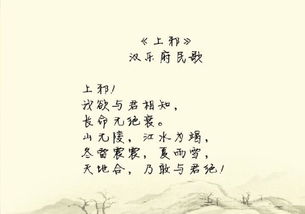 《上邪》
汉乐府民歌
上邪！
我欲与君相知，
长命无绝衰。
山无陵，江水为竭，
冬雷震震，夏雨雪，
天地合，乃敢与君绝！